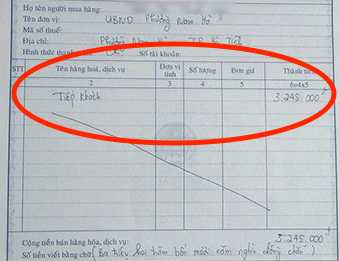 Họ tên người mua hàng:
Tên đơn vị: UBND Phường Nam Hà
Mã số thuế:
Địa chỉ: Phường Nam Hà TP Hà Tĩnh
Hình thức thanh Số tài khoản:
STT Tên hàng hoá, dịch vụ Đơn vị tính Số lượng Đơn giá Thành tiền
2 3 4 5 6=4x5
Tiếp khách 3.245.000đ
Cộng tiền bán hàng hóa, dịch vụ: 3.245.000đ
Số tiền viết bằng chữ: (Ba triệu hai trăm bốn mươi năm nghìn đồng chẵn)